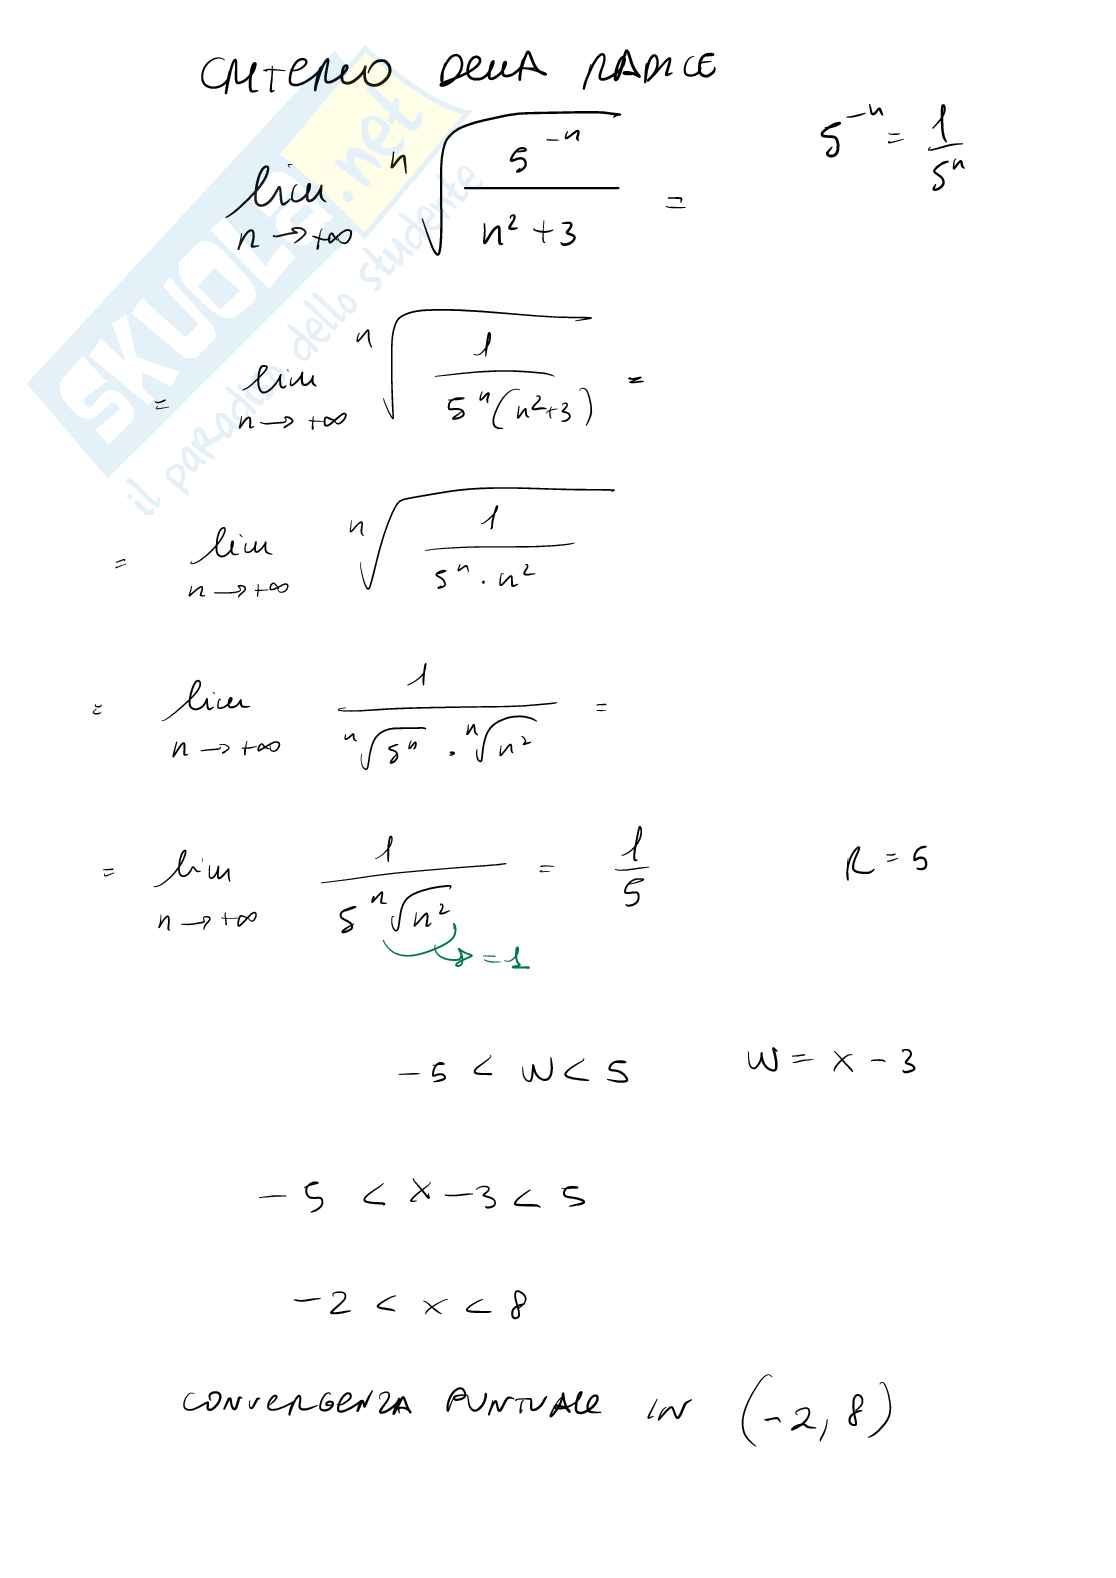 CRITERIO DELLA RADICE
lim n→+∞ ⁿ√(5⁻ⁿ / (n²+3)) =
5⁻ⁿ = 1/5ⁿ
= lim n→+∞ ⁿ√(1 / (5ⁿ(n²+3))) =
= lim n→+∞ ⁿ√(1 / (5ⁿ · n²))
= lim n→+∞ 1 / (ⁿ√5ⁿ · ⁿ√n²) =
= lim n→+∞ 1 / (5 ⁿ√n²) = 1/5 R = 5
→ = 1
-5 < W < 5 W = x - 3
-5 < x - 3 < 5
-2 < x < 8
CONVERGENZA PUNTUALE IN (-2, 8)
SKUOLA.net
il paradiso dello studente